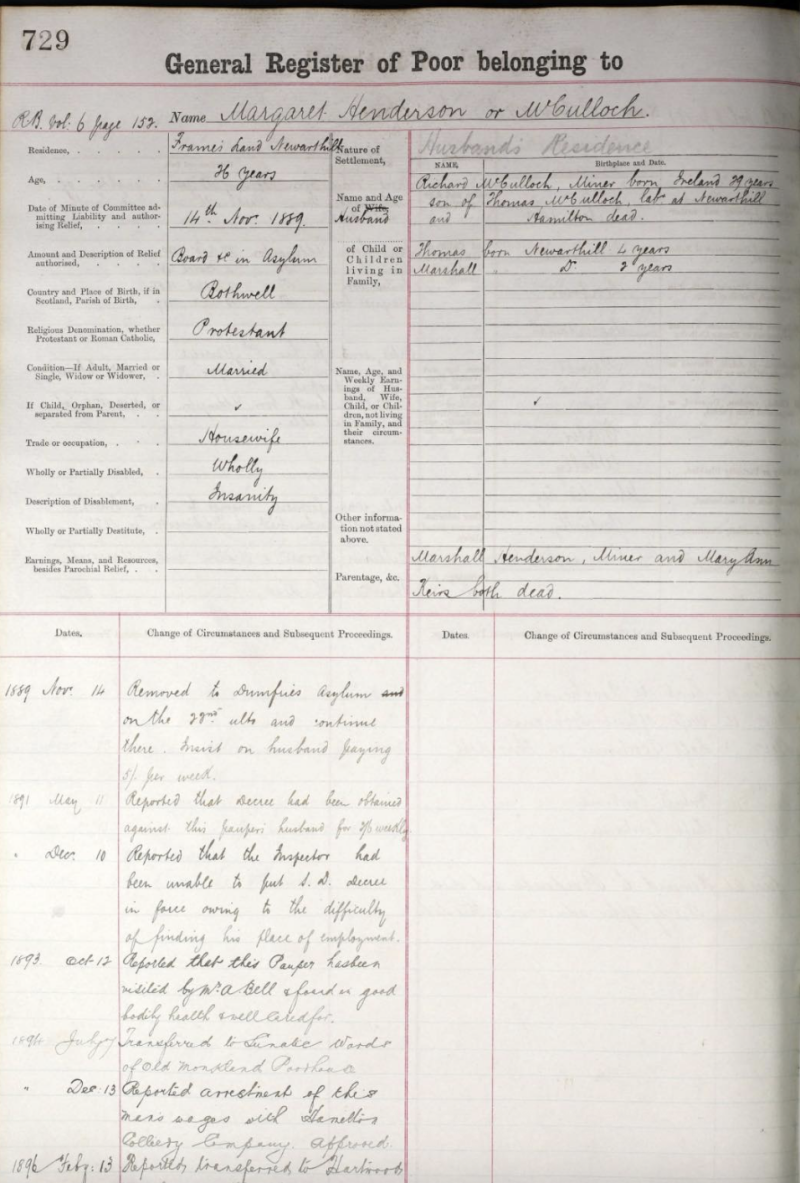 729
General Register of Poor belonging to
R.B. Vol. 6 page 152. Name Margaret Henderson or McCulloch.
Residence, Frame's Land Newarthill
Age, 26 years
Date of Minute of Committee admitting Liability and authorising Relief, 14th Nov. 1889.
Amount and Description of Relief authorised, Board &c in Asylum
Country and Place of Birth, if in Scotland, Parish of Birth, Bothwell
Religious Denomination, whether Protestant or Roman Catholic, Protestant
Condition—If Adult, Married or Single, Widow or Widower, Married
If Child, Orphan, Deserted, or separated from Parent, ✓
Trade or occupation, Housewife
Wholly or Partially Disabled, Wholly
Description of Disablement, Insanity
Wholly or Partially Destitute,
Earnings, Means, and Resources, besides Parochial Relief,
Nature of Settlement, Husband's Residence
NAME, Birthplace and Date.
Name and Age of Wife Husband
Richard McCulloch, Miner born Ireland 29 years
son of Thomas McCulloch, lab at Newarthill
and Hamilton dead.
of Child or Children living in Family,
Thomas born Newarthill 4 years
Marshall " Do. 2 years
Name, Age, and Weekly Earnings of Husband, Wife, Child, or Children, not living in Family, and their circumstances. ✓
Other information not stated above.
Parentage, &c.
Marshall Henderson, Miner and Mary Ann
Keirs both dead.
Dates. Change of Circumstances and Subsequent Proceedings. Dates. Change of Circumstances and Subsequent Proceedings.
1889 Nov. 14 Removed to Dumfries Asylum and
on the 22nd ulto and continue
there. Insist on husband paying
5/. per week.
1891 May 11 Reported that Decree had been obtained
against this paupers husband for weekly
" Dec. 10 Reported that the Inspector had
been unable to put S. D. decree
in force owing to the difficulty
of finding his place of employment.
1893. Oct 12 Reported that this Pauper has been
visited by Mr A Bell & found in good
bodily health & well cared for.
1894 July Transferred to Lunatic Wards
of Old Monkland Poorhouse
" Dec. 13 Reported arrestment of this
mans wages with
Colliery Company. Approved.
1896 Feby. 13 Reported transferred to Hartwood